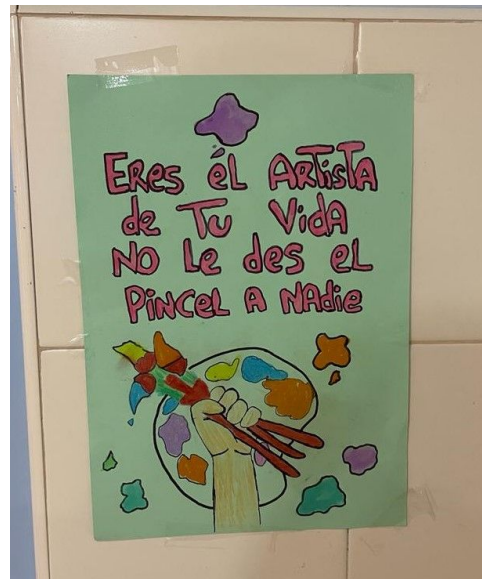 ERes éL ARTisTA
de Tu Vida
NO Le des eL
PiNCeL A NAdie